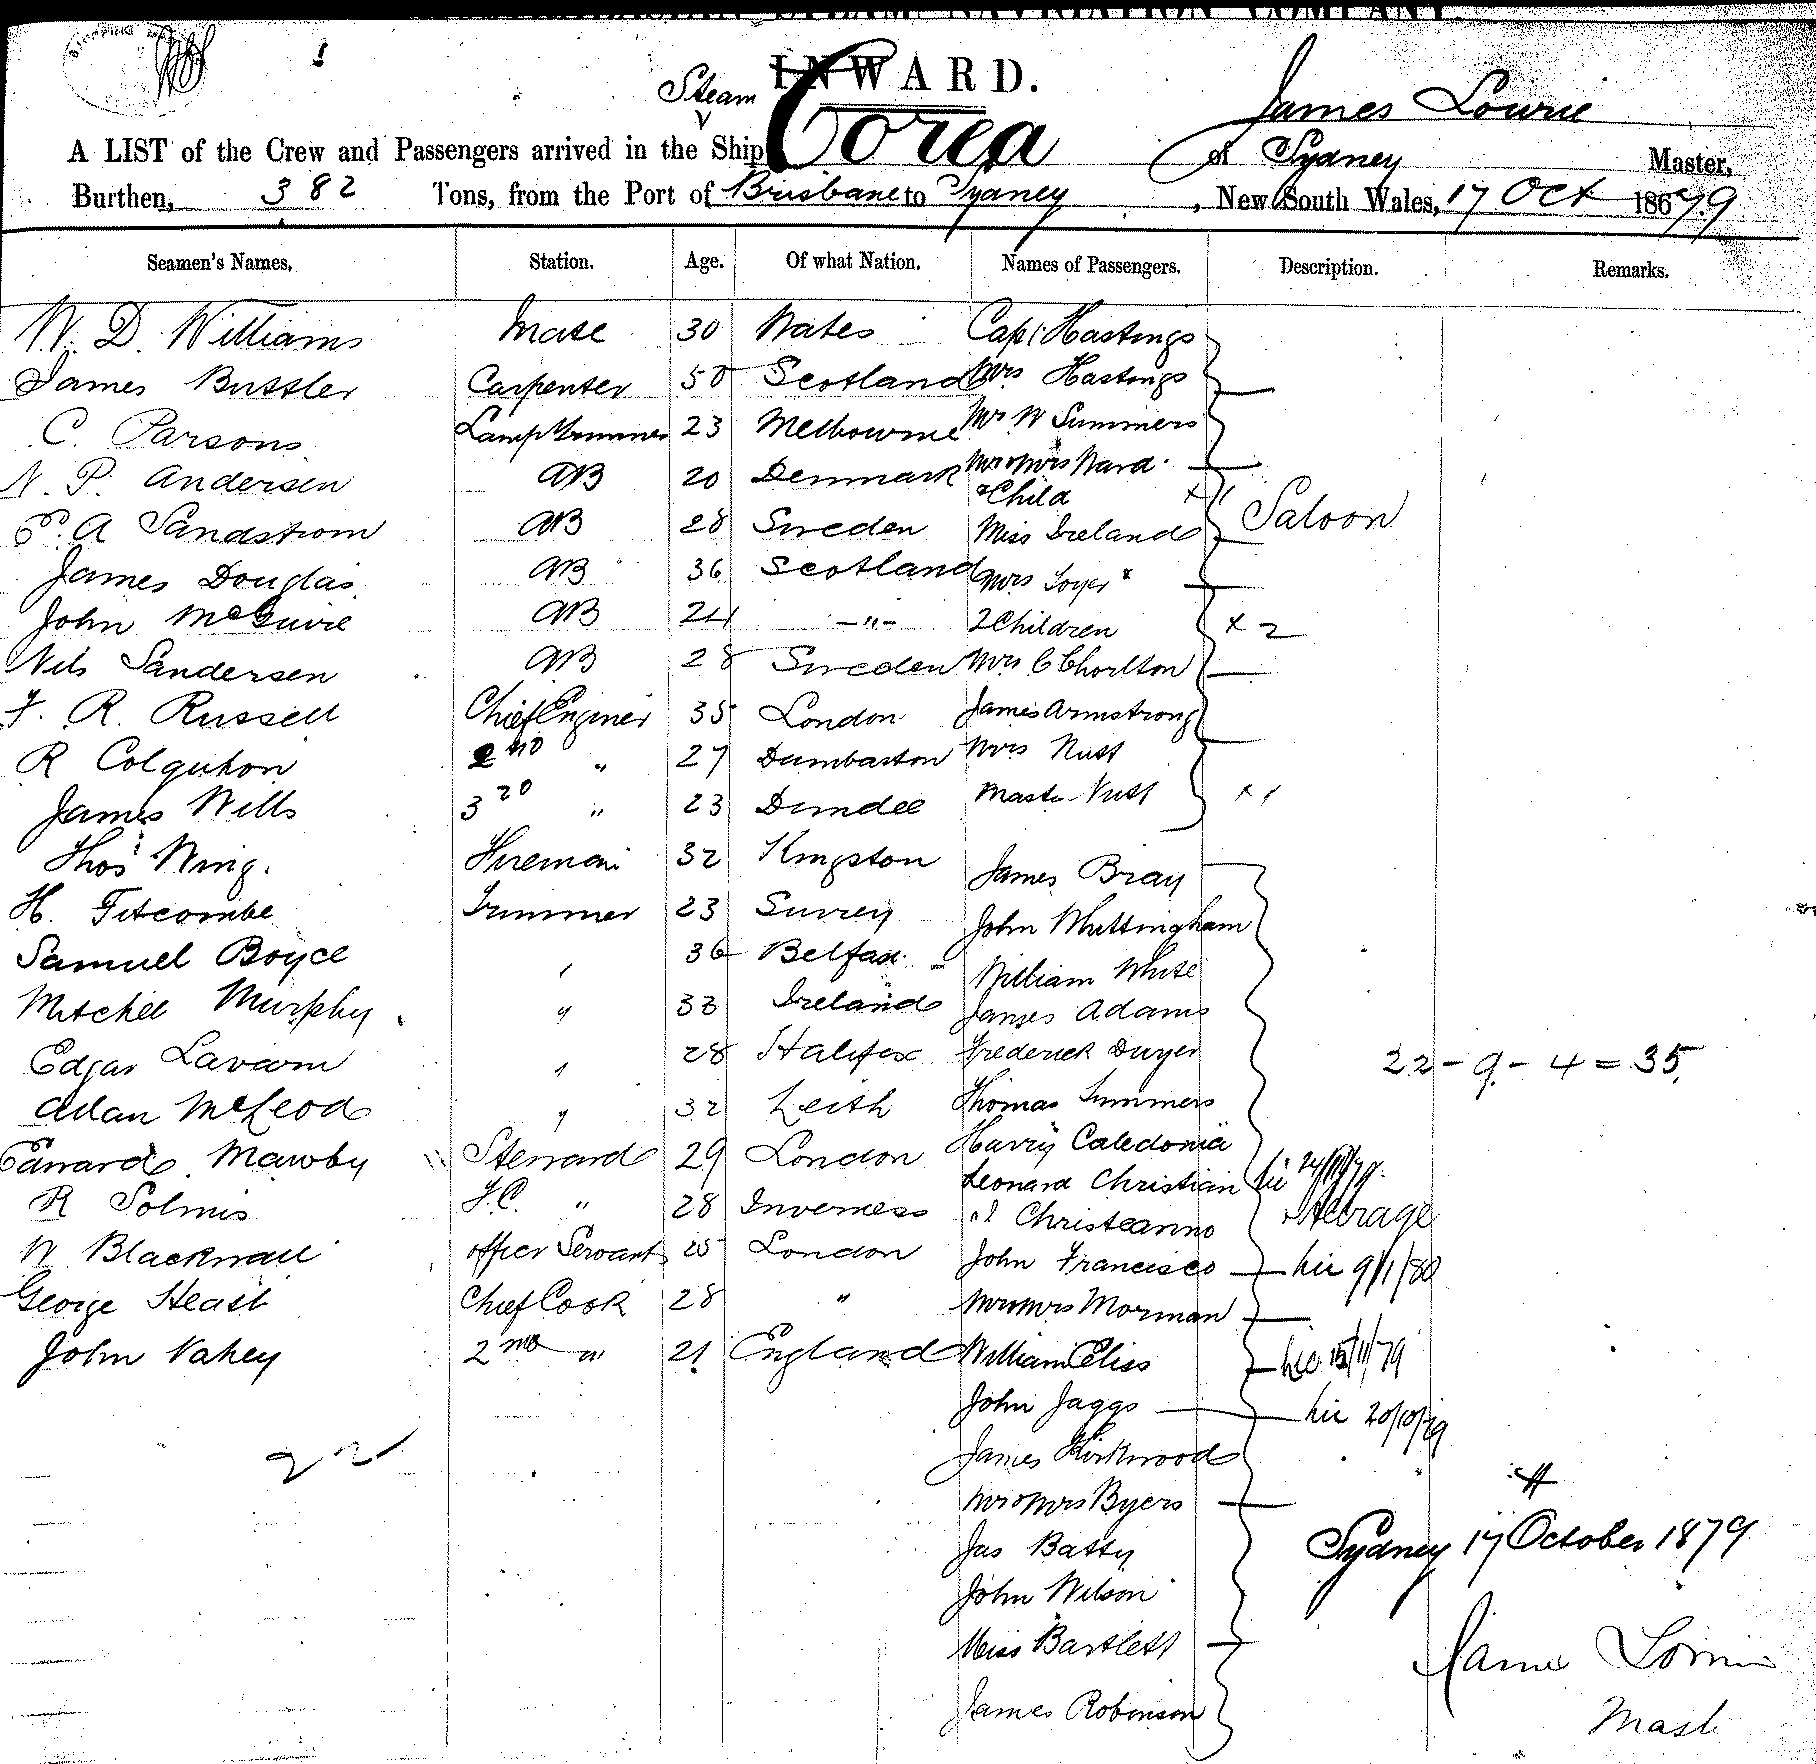 INWARD.
Steam
James Lowrie
A LIST of the Crew and Passengers arrived in the Ship Corea of Sydney Master,
Burthen, 382 Tons, from the Port of Brisbane to Sydney, New South Wales, 17 Oct 1879
Seamen's Names. Station. Age. Of what Nation. Names of Passengers. Description. Remarks.
W. D. Williams Mate 30 Wales Capt Hastings
James Bussler Carpenter 50 Scotland Mrs Hastings
C. Parsons Lamp Trimmer 23 Melbourne Mr W Summers
N. P. Andersen AB 20 Denmark Mr & Mrs Ward
& Child
P. A Sandstrom AB 28 Sweden Miss Ireland Saloon
James Douglas AB 36 Scotland Mrs Soyer &
John McGuire AB 24 -"- 2 Children x 2
Nils Sandersen AB 28 Sweden Mrs C Chorlton
F. R. Russell Chief Enginer 35 London James Armstrong
R Colquhon 2nd " 27 Dumbarton Mrs Nutt
James Wills 3rd " 23 Dundee Master Nutt x 1
Thos King. Fireman 32 Kingston James Bray
H. Titcombe Trimmer 23 Surrey John Whittingham
Samuel Boyce 36 Belfast William White
Mitchell Murphy " 33 Ireland James Adams
Edgar 28 Halifax Frederick Dwyer 22 - 9 - 4 = 35
Allan McLeod " 32 Leith Thomas Summers
Edward Mawby Steward 29 London Harry Caledonia
Leonard Christian
R Solmis F.C. " 28 Inverness Christeanno Steerage
W Blackwall officer Servant 25 London John Francisco lic 9/1/80
George Heast Chief Cook 28 " Mr & Mrs Morman
John Vahey 2nd " 21 England William Eliss lic 15/11/79
John Jaggs lic 20/10/79
22 James Kirkwood
Mr & Mrs Byers
Jas Batty Sydney 17 October 1879
John Wilson
Miss Bartlett James Lowrie
James Robinson Mast